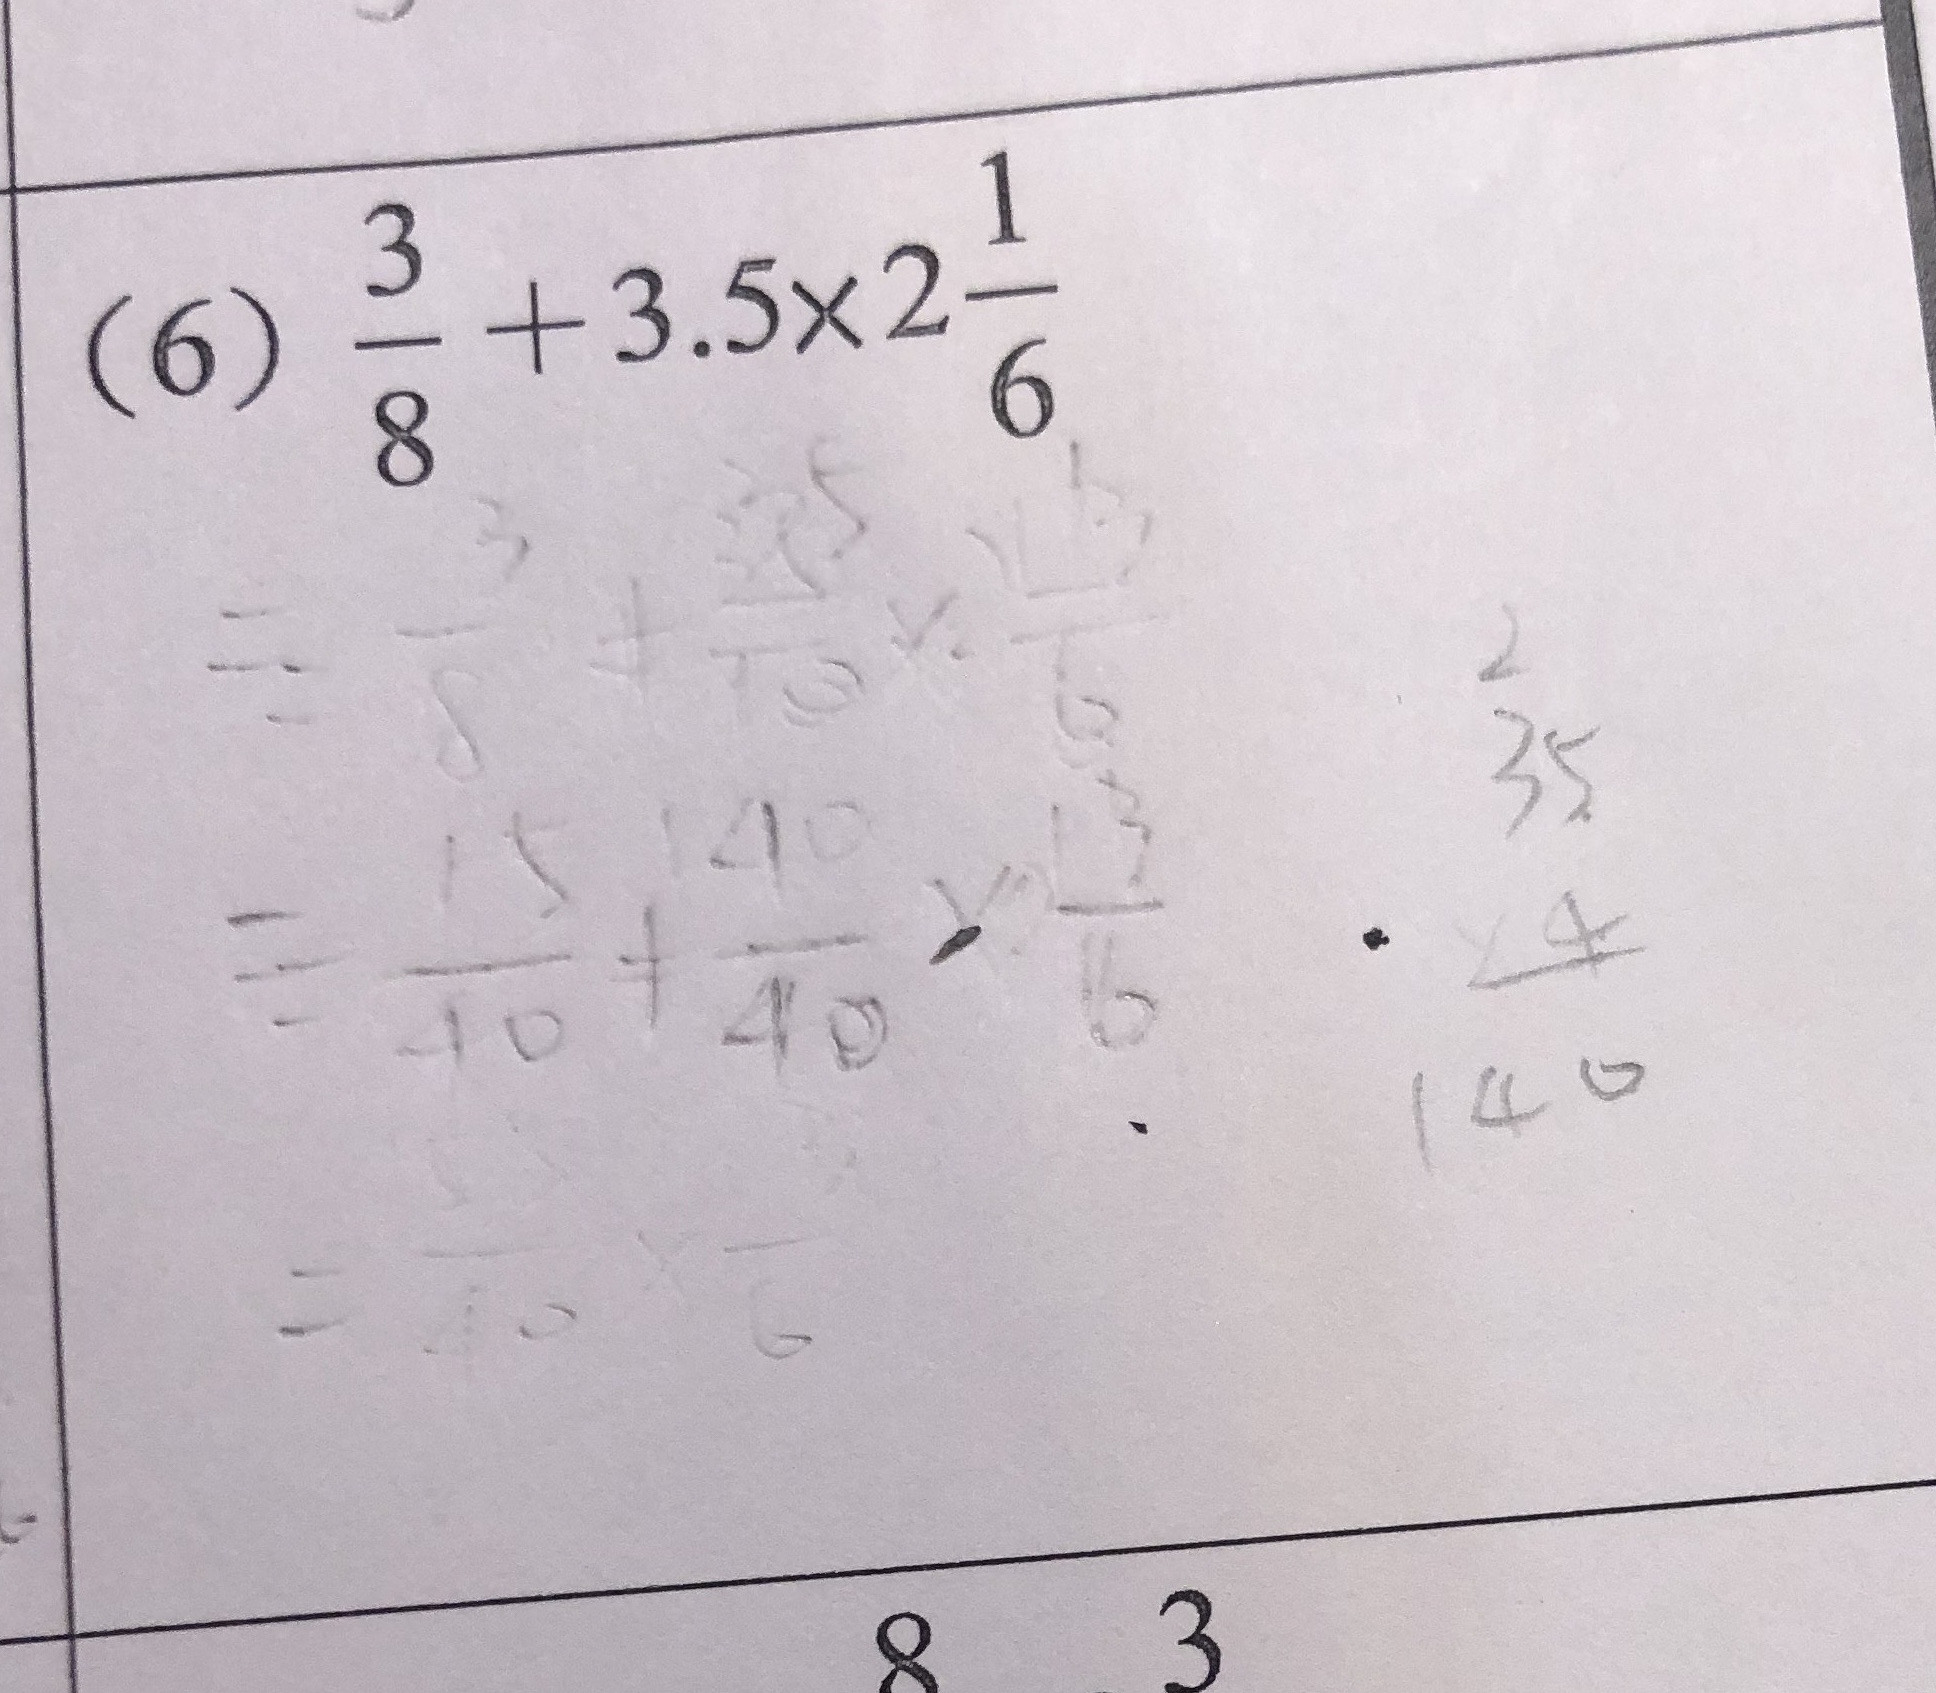 (6) 3/8 + 3.5×2 1/6
= 3/8 + 35/10 × 13/6
= 15/40 + 140/40 × 13/6
= /40 × /6
2
35
×4
140
8 3